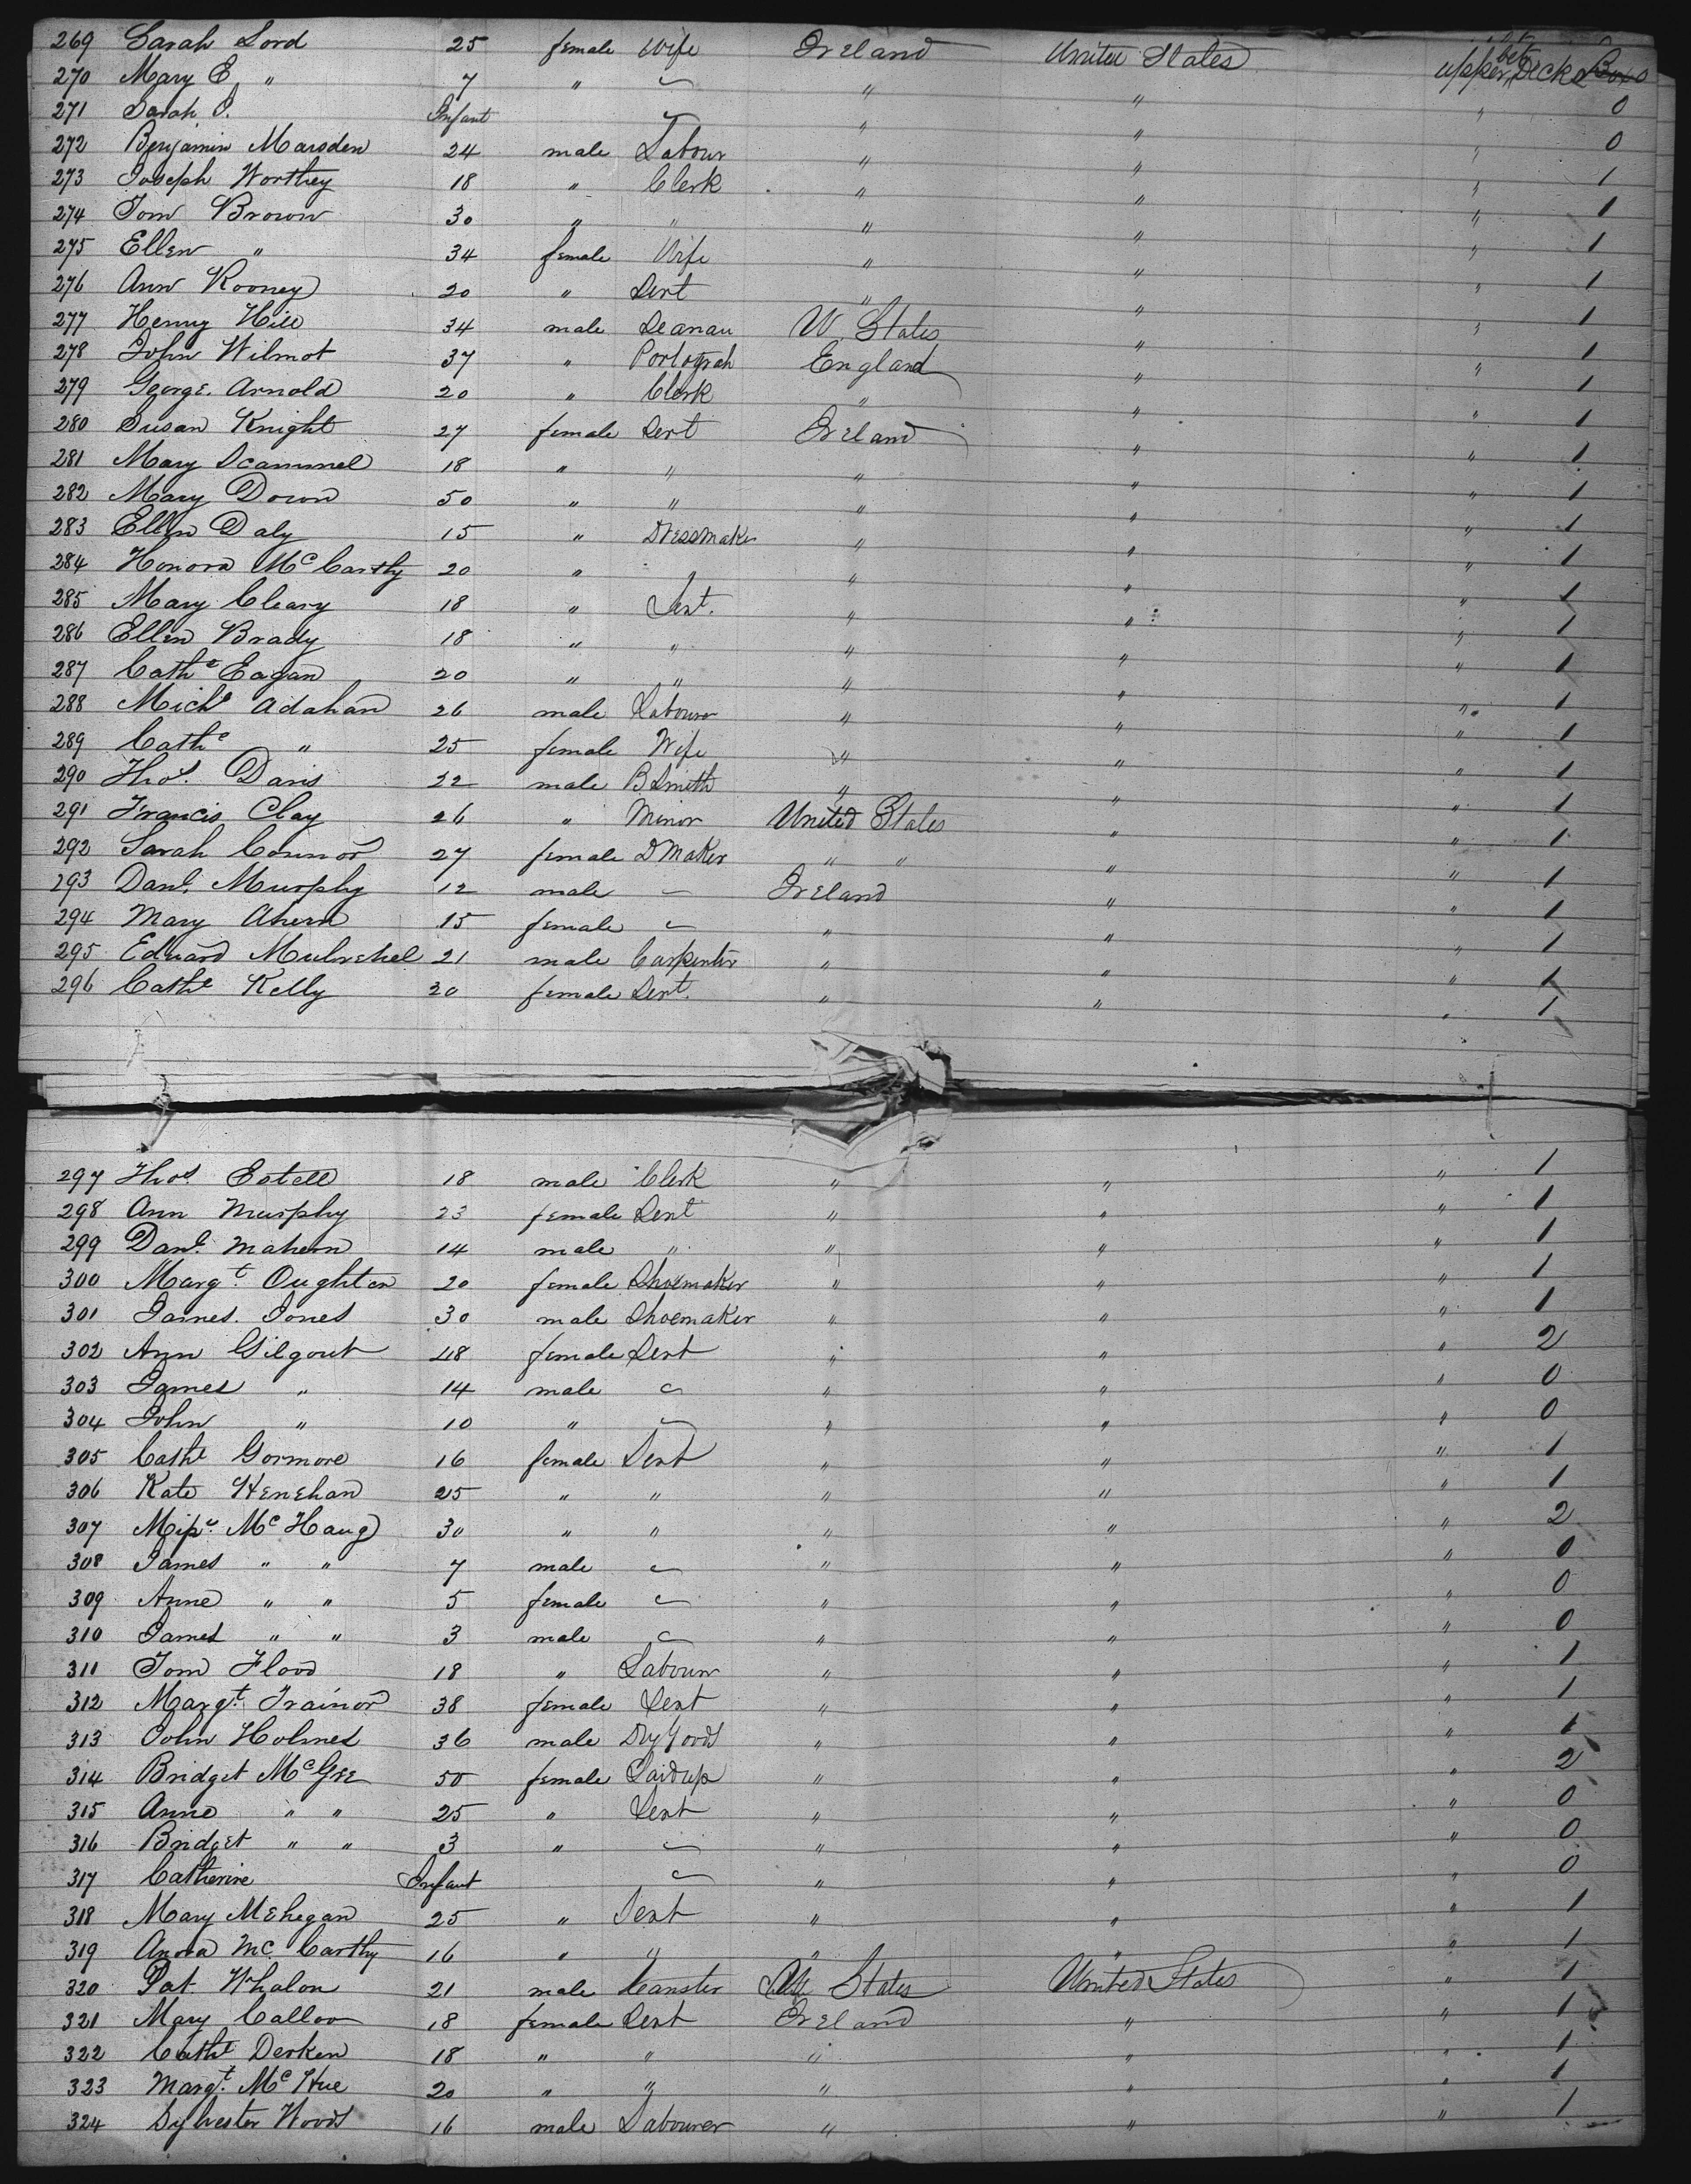 269 Sarah Lord 25 female Wife Ireland United States upper bet Decks Box 0
270 Mary E " 7 " ~ " " " 0
271 Sarah J. Infant ~ " " " 0
272 Benjamin Marsden 24 male Labour " " " 1
273 Joseph Worthey 18 " Clerk " " " 1
274 Tom Brown 30 " " " " " 1
275 Ellen " 34 female Wife " " " 1
276 Ann Rooney 20 " Sert " " " 1
277 Henry Hill 34 male Seaman U. States " " 1
278 John Wilmot 37 " England " " 1
279 George. Arnold 20 " Clerk " " " 1
280 Susan Knight 27 female Sert Ireland " " 1
281 Mary Scammel 18 " " " " " 1
282 Mary Down 50 " " " " " 1
283 Ellen Daly 15 " Dressmaker " " " 1
284 Honora McCarthy 20 " " " " " 1
285 Mary Cleary 18 " Sert. " " " 1
286 Ellen Brady 18 " " " " " 1
287 Cathe Eagan 20 " " " " " 1
288 Michl Adahan 26 male Labourer " " " 1
289 Cathe " 25 female Wife " " " 1
290 Thos. Davis 22 male B Smith " " " 1
291 Francis Clay 26 " Minor United States " " 1
292 Sarah Connor 27 female D Maker " " " " 1
293 Danl. Murphy 12 male ~ Ireland " " 1
294 Mary Ahern 15 female ~ " " " 1
295 Edward Mulrehel 21 male Carpenter " " " 1
296 Cathe Kelly 20 female Sert. " " " 1
297 Thos. Estell 18 male Clerk " " " 1
298 Ann Murphy 23 female Sert " " " 1
299 Danl. Mahern 14 male " " " " 1
300 Margt. Oughton 20 female Shoemaker " " " 1
301 James. Jones 30 male Shoemaker " " " 1
302 Ann Gilgout 48 female Sert " " " 2
303 James " 14 male ~ " " " 0
304 John " 10 " ~ " " " 0
305 Cathe Gormore 16 female Sert " " " 1
306 Kate Henehan 25 " " " " " 1
307 Mc Haug 30 " " " " " 2
308 James " " 7 male ~ " " " 0
309 Anne " " 5 female ~ " " " 0
310 James " " 3 male ~ " " " 0
311 Tom Flood 18 " Labourer " " " 1
312 Margt. Trainor 38 female Sert " " " 1
313 John Holmes 36 male Dry Goods " " " 1
314 Bridget McGee 50 female " " " 2
315 Anne " " 25 " Sert " " " 0
316 Bridget " " 3 " ~ " " " 0
317 Catherine Infant ~ " " " 0
318 Mary Mehegan 25 " Sert " " " 1
319 Anora Mc. Carthy 16 " " " " " 1
320 Pat. Whalon 21 male Teamster States United States " 1
321 Mary Calloo 18 female Sert Ireland " " 1
322 Cathe Derken 18 " " " " " 1
323 Margt. McHue 20 " " " " " 1
324 Sylvester Woods 16 male Labourer " " " 1